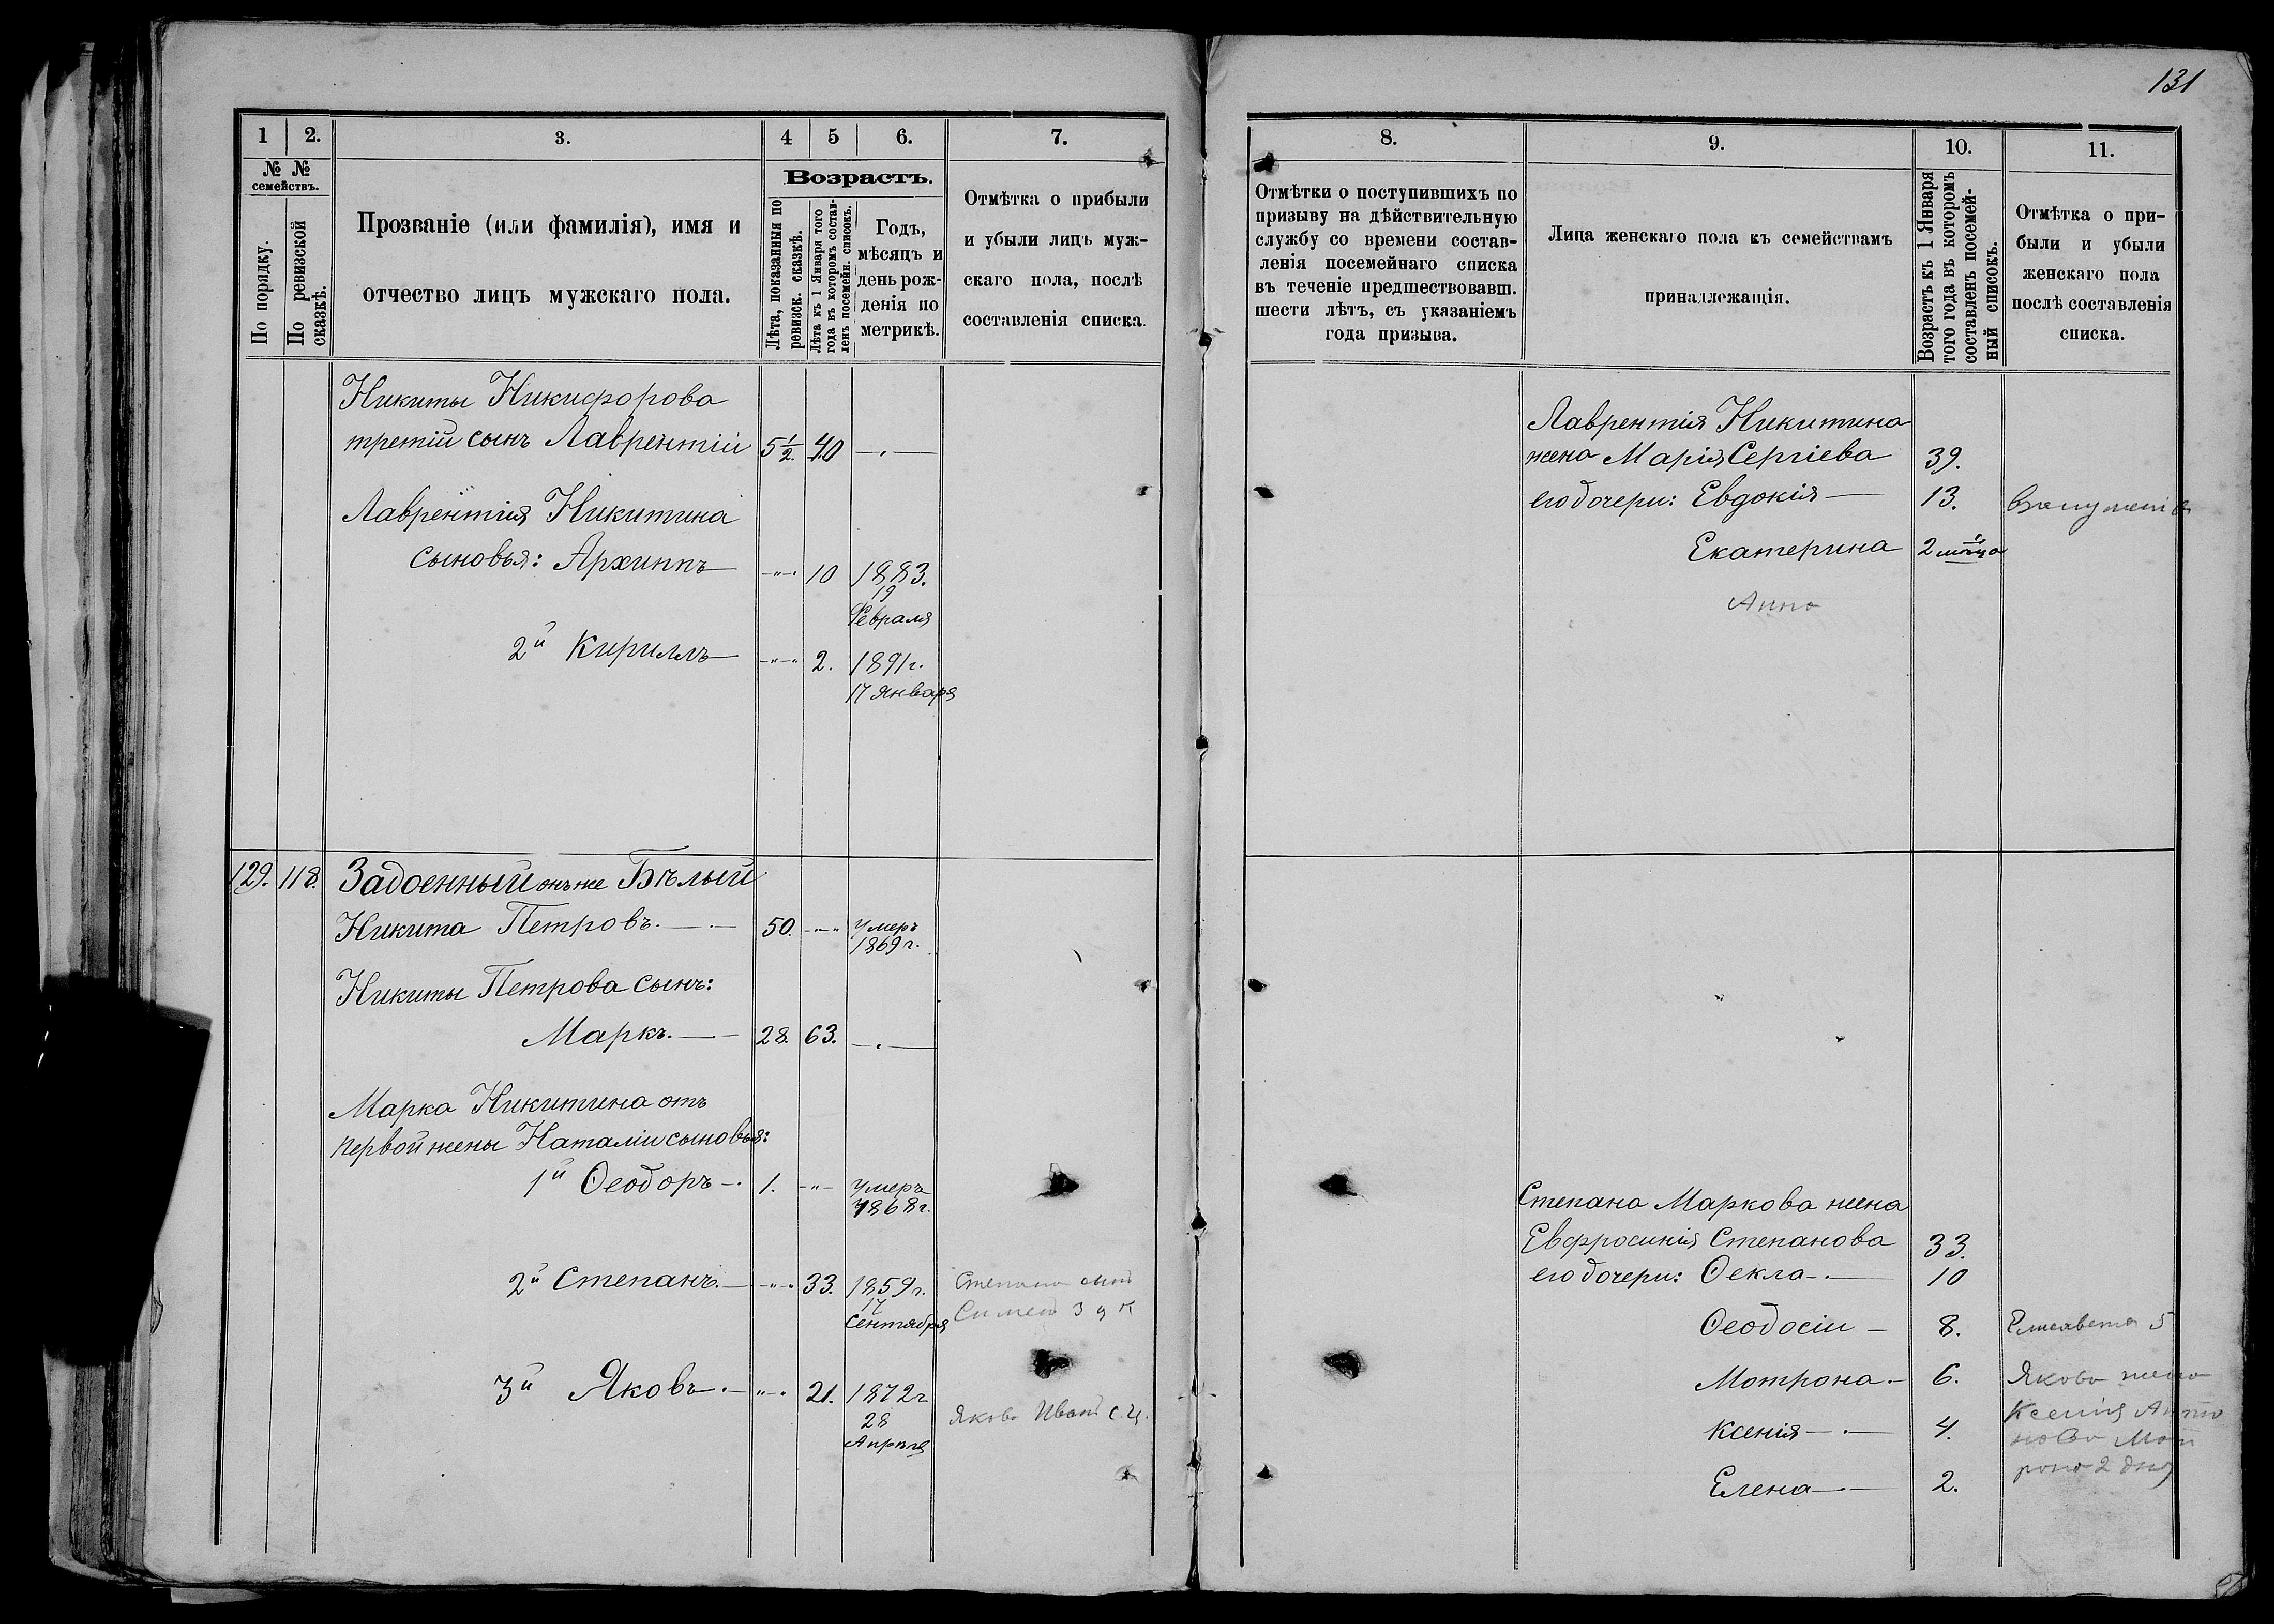 131
1
2.
3.
4
5
6.
7.
№ №
семействъ.
По порядку.
По ревизской
сказкѣ.
Прозваніе (или фамилія), имя и
отчество лицъ мужскаго пола.
Возрастъ.
Лѣта, показанныя по
ревизск. сказкѣ.
Лѣта къ 1 Января того
года въ которомъ состав-
ленъ посемейн. списокъ.
Годъ,
мѣсяцъ и
день рож-
денія по
метрикѣ.
Отмѣтка о прибыли
и убыли лицъ муж-
скаго пола, послѣ
составленія списка.
Никиты Никифорова
третій сынъ Лаврентій 5½. 40
Лаврентія Никитина
сыновья: Архиппъ 10 1883.
19
Февраля
2й Кириллъ 2. 1891г.
17 Января
129. 118. Задоенный онъ же Бѣлый
Никита Петровъ. 50. умеръ
1869 г.
Никиты Петрова сынъ:
Маркъ. 28. 63.
Марка Никитина отъ
первой жены Наталіи сыновья:
1й Ѳеодоръ 1. умеръ
1868г.
2й Степанъ. 33. 1859г.
17
Сентября
Степана
3й Яковъ. 21. 1872г
28
Апрѣля
Якова Иванъ
8.
9.
10.
11.
Отмѣтки о поступившихъ по
призыву на дѣйствительную
службу со времени состав-
ленія посемейнаго списка
въ теченіе предшествовавш.
шести лѣтъ, съ указаніемъ
года призыва.
Лица женскаго пола къ семействамъ
принадлежащія.
Возрастъ къ 1 Января
того года въ которомъ
составленъ посемей-
ный списокъ.
Отмѣтка о при-
были и убыли
женскаго пола
послѣ составленія
списка.
Лаврентія Никитина
жена Марія Сергіева 39.
его дочери: Евдокія 13.
Екатерина 2 мѣсца
Анна
Степана Маркова жена
Евфросинія Степанова 33.
его дочери: Ѳекла 10
Ѳеодосіи 8. Елисавета 5
Мотрона 6. Якова жена
Ксенія 4. Ксенія Анто
нова Мот
рона 2 дня
Елена 2.